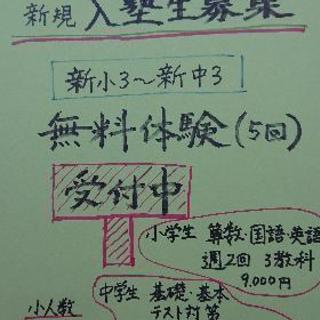 新規 入塾生募集
新小3〜新中3
無料体験(5回)
受付中
小学生 算数・国語・英語
週2回 3教科
9,000円
中学生 基礎・基本
テスト対策
小人数